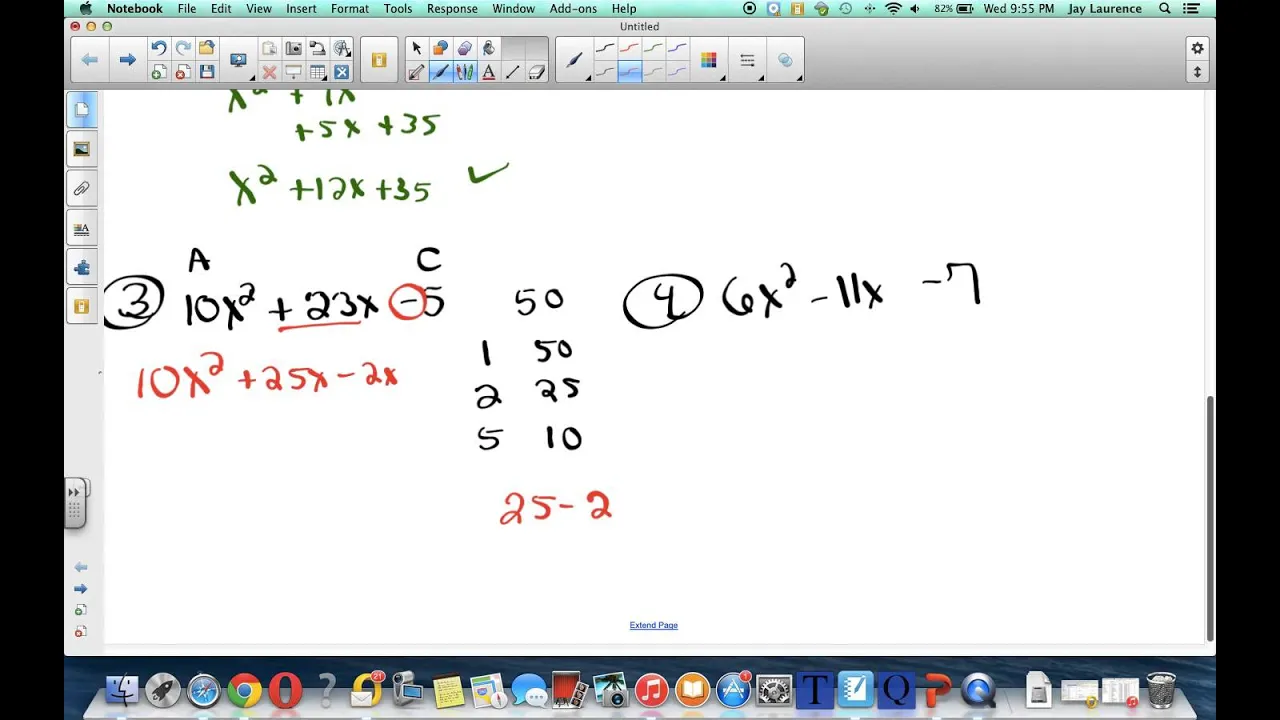 Notebook File Edit View Insert Format Tools Response Window Add-ons Help 82% Wed 9:55 PM Jay Laurence
Untitled
x² + 7x
+5x +35
x² +12x +35 ✓
A C
3 10x² + 23x -5 50
1 50
2 25
5 10
10x² + 25x - 2x
25 - 2
4 6x² - 11x - 7
Extend Page